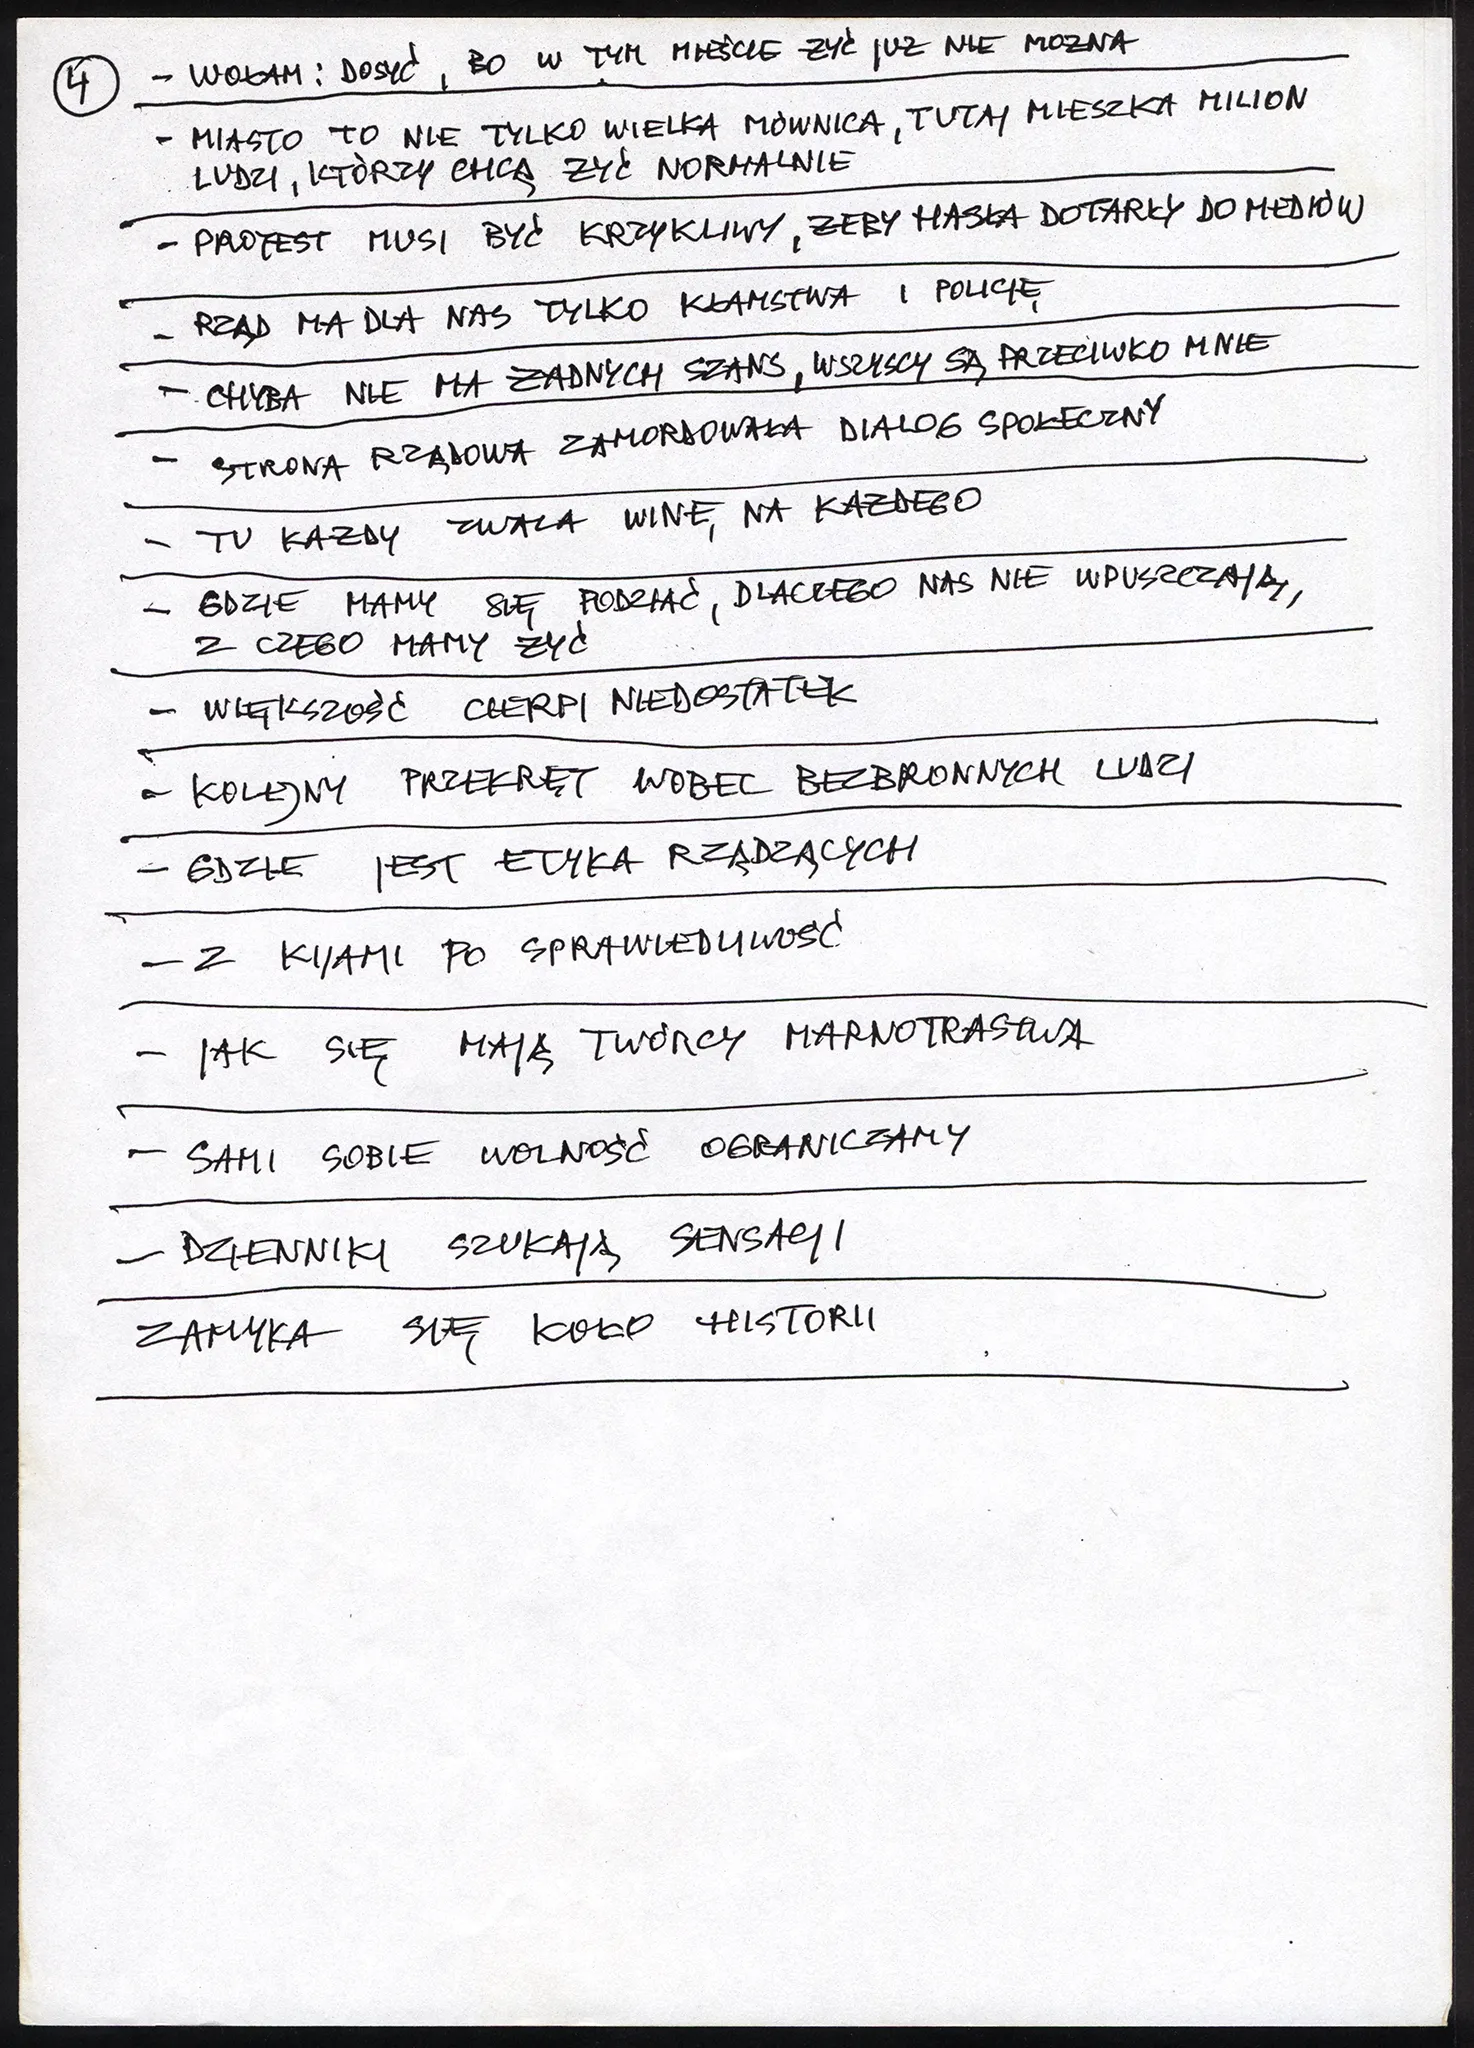 4
- WOŁAM: DOSYĆ, BO W TYM MIEŚCIE ŻYĆ JUŻ NIE MOŻNA
- MIASTO TO NIE TYLKO WIELKA MÓWNICA, TUTAJ MIESZKA MILION
LUDZI, KTÓRZY CHCĄ ŻYĆ NORMALNIE
- PROTEST MUSI BYĆ KRZYKLIWY, ŻEBY HASŁA DOTARŁY DO MEDIÓW
- RZĄD MA DLA NAS TYLKO KŁAMSTWA I POLICJĘ
- CHYBA NIE MA ŻADNYCH SZANS, WSZYSCY SĄ PRZECIWKO MNIE
- STRONA RZĄDOWA ZAMORDOWAŁA DIALOG SPOŁECZNY
- TU KAŻDY ZWALA WINĘ NA KAŻDEGO
- GDZIE MAMY SIĘ PODZIAĆ, DLACZEGO NAS NIE WPUSZCZAJĄ,
Z CZEGO MAMY ŻYĆ
- WIĘKSZOŚĆ CIERPI NIEDOSTATEK
- KOLEJNY PRZEKRĘT WOBEC BEZBRONNYCH LUDZI
- GDZIE JEST ETYKA RZĄDZĄCYCH
- Z KIJAMI PO SPRAWIEDLIWOŚĆ
- JAK SIĘ MAJĄ TWÓRCY MARNOTRASTWA
- SAMI SOBIE WOLNOŚĆ OGRANICZAMY
- DZIENNIKI SZUKAJĄ SENSACJI
ZAMYKA SIĘ KOŁO HISTORII